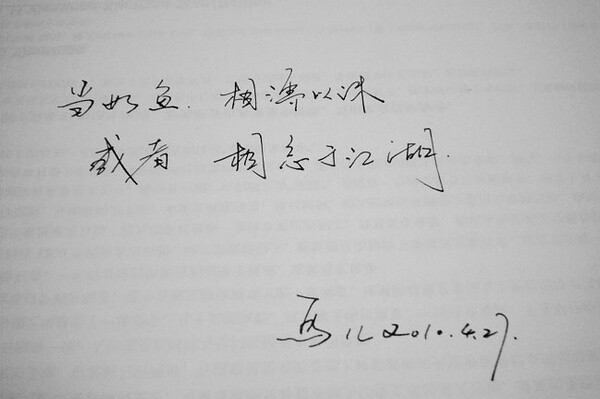 当如鱼.相濡以沫
或者 相忘于江湖.
馬儿2010.4.27.